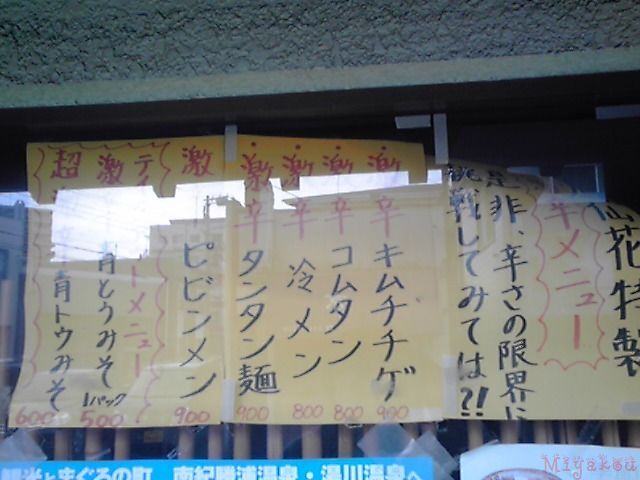 仙花特製
辛メニュー
是非、辛さの限界に
挑戦してみては?!
激辛キムチチゲ 900
激辛コムタン 800
激辛冷メン 800
激辛タンタン麺 900
激 ピビンメン 900
テイ トメニュー
激 青とうみそ 1パック 500
超 青トウみそ 600
観光とまぐろの町 南紀勝浦温泉・湯川温泉へ
Miyakou